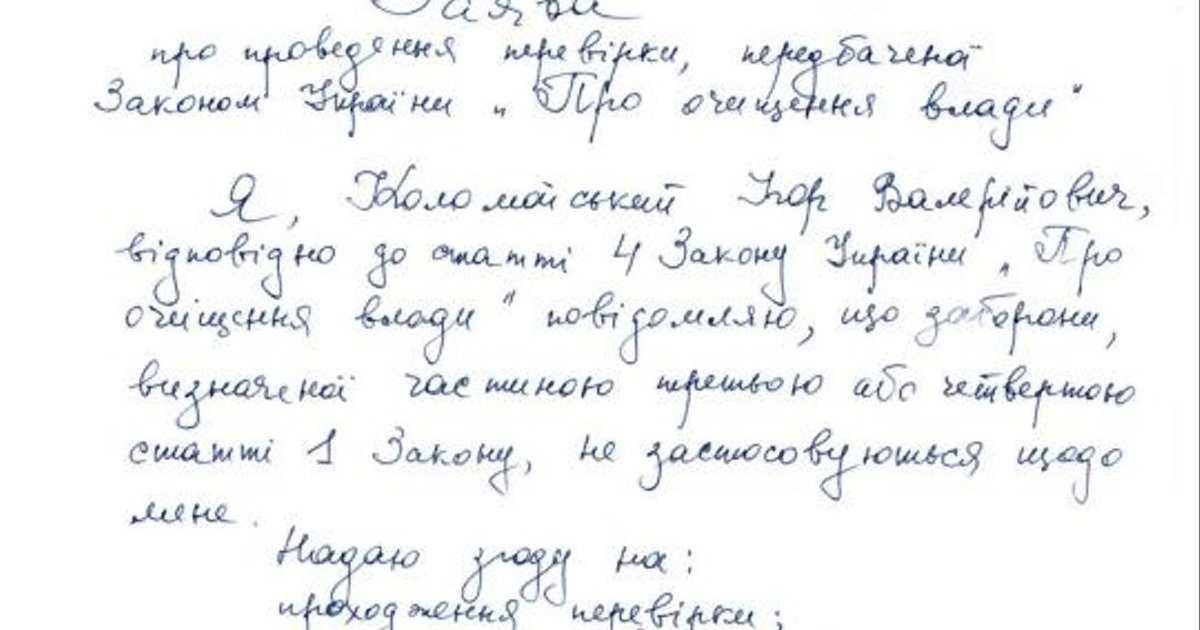 Заява
про проведення перевірки, передбаченої
Законом України „Про очищення влади"
Я, Коломойський Ігор Валерійович,
відповідно до статті 4 Закону України „Про
очищення влади" повідомляю, що заборони,
визначеної частиною третьою або четвертою
статті 1 Закону, не застосовуються щодо
мене.
Надаю згоду на:
проходження перевірки;